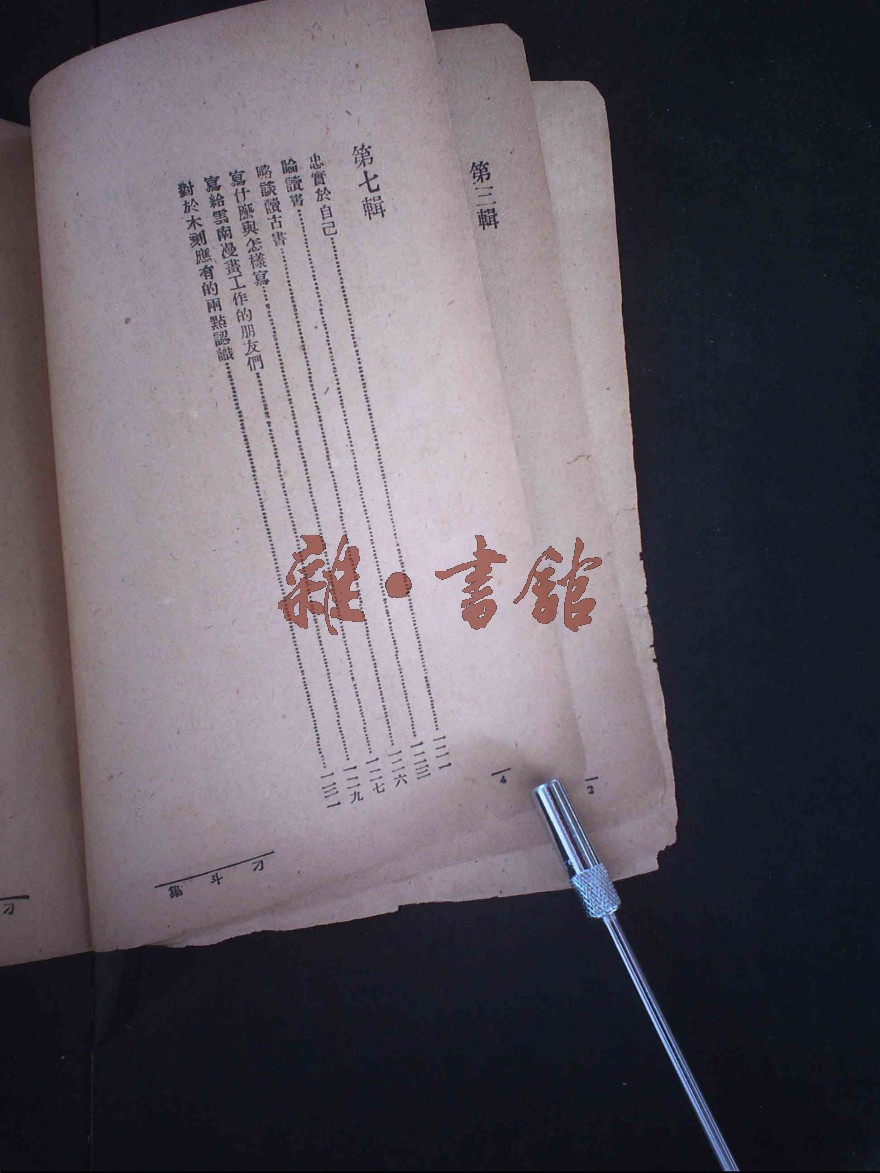 第三輯
2
第七輯
忠實於自己……一二一
論讀書……一二三
略談讀古書……一二六
寫什麼與怎樣寫……一二七
寫給雲南漫畫工作的朋友們……一二九
對於木刻應有的兩點認識……一三一
4
刁斗集
刁
雜·書館